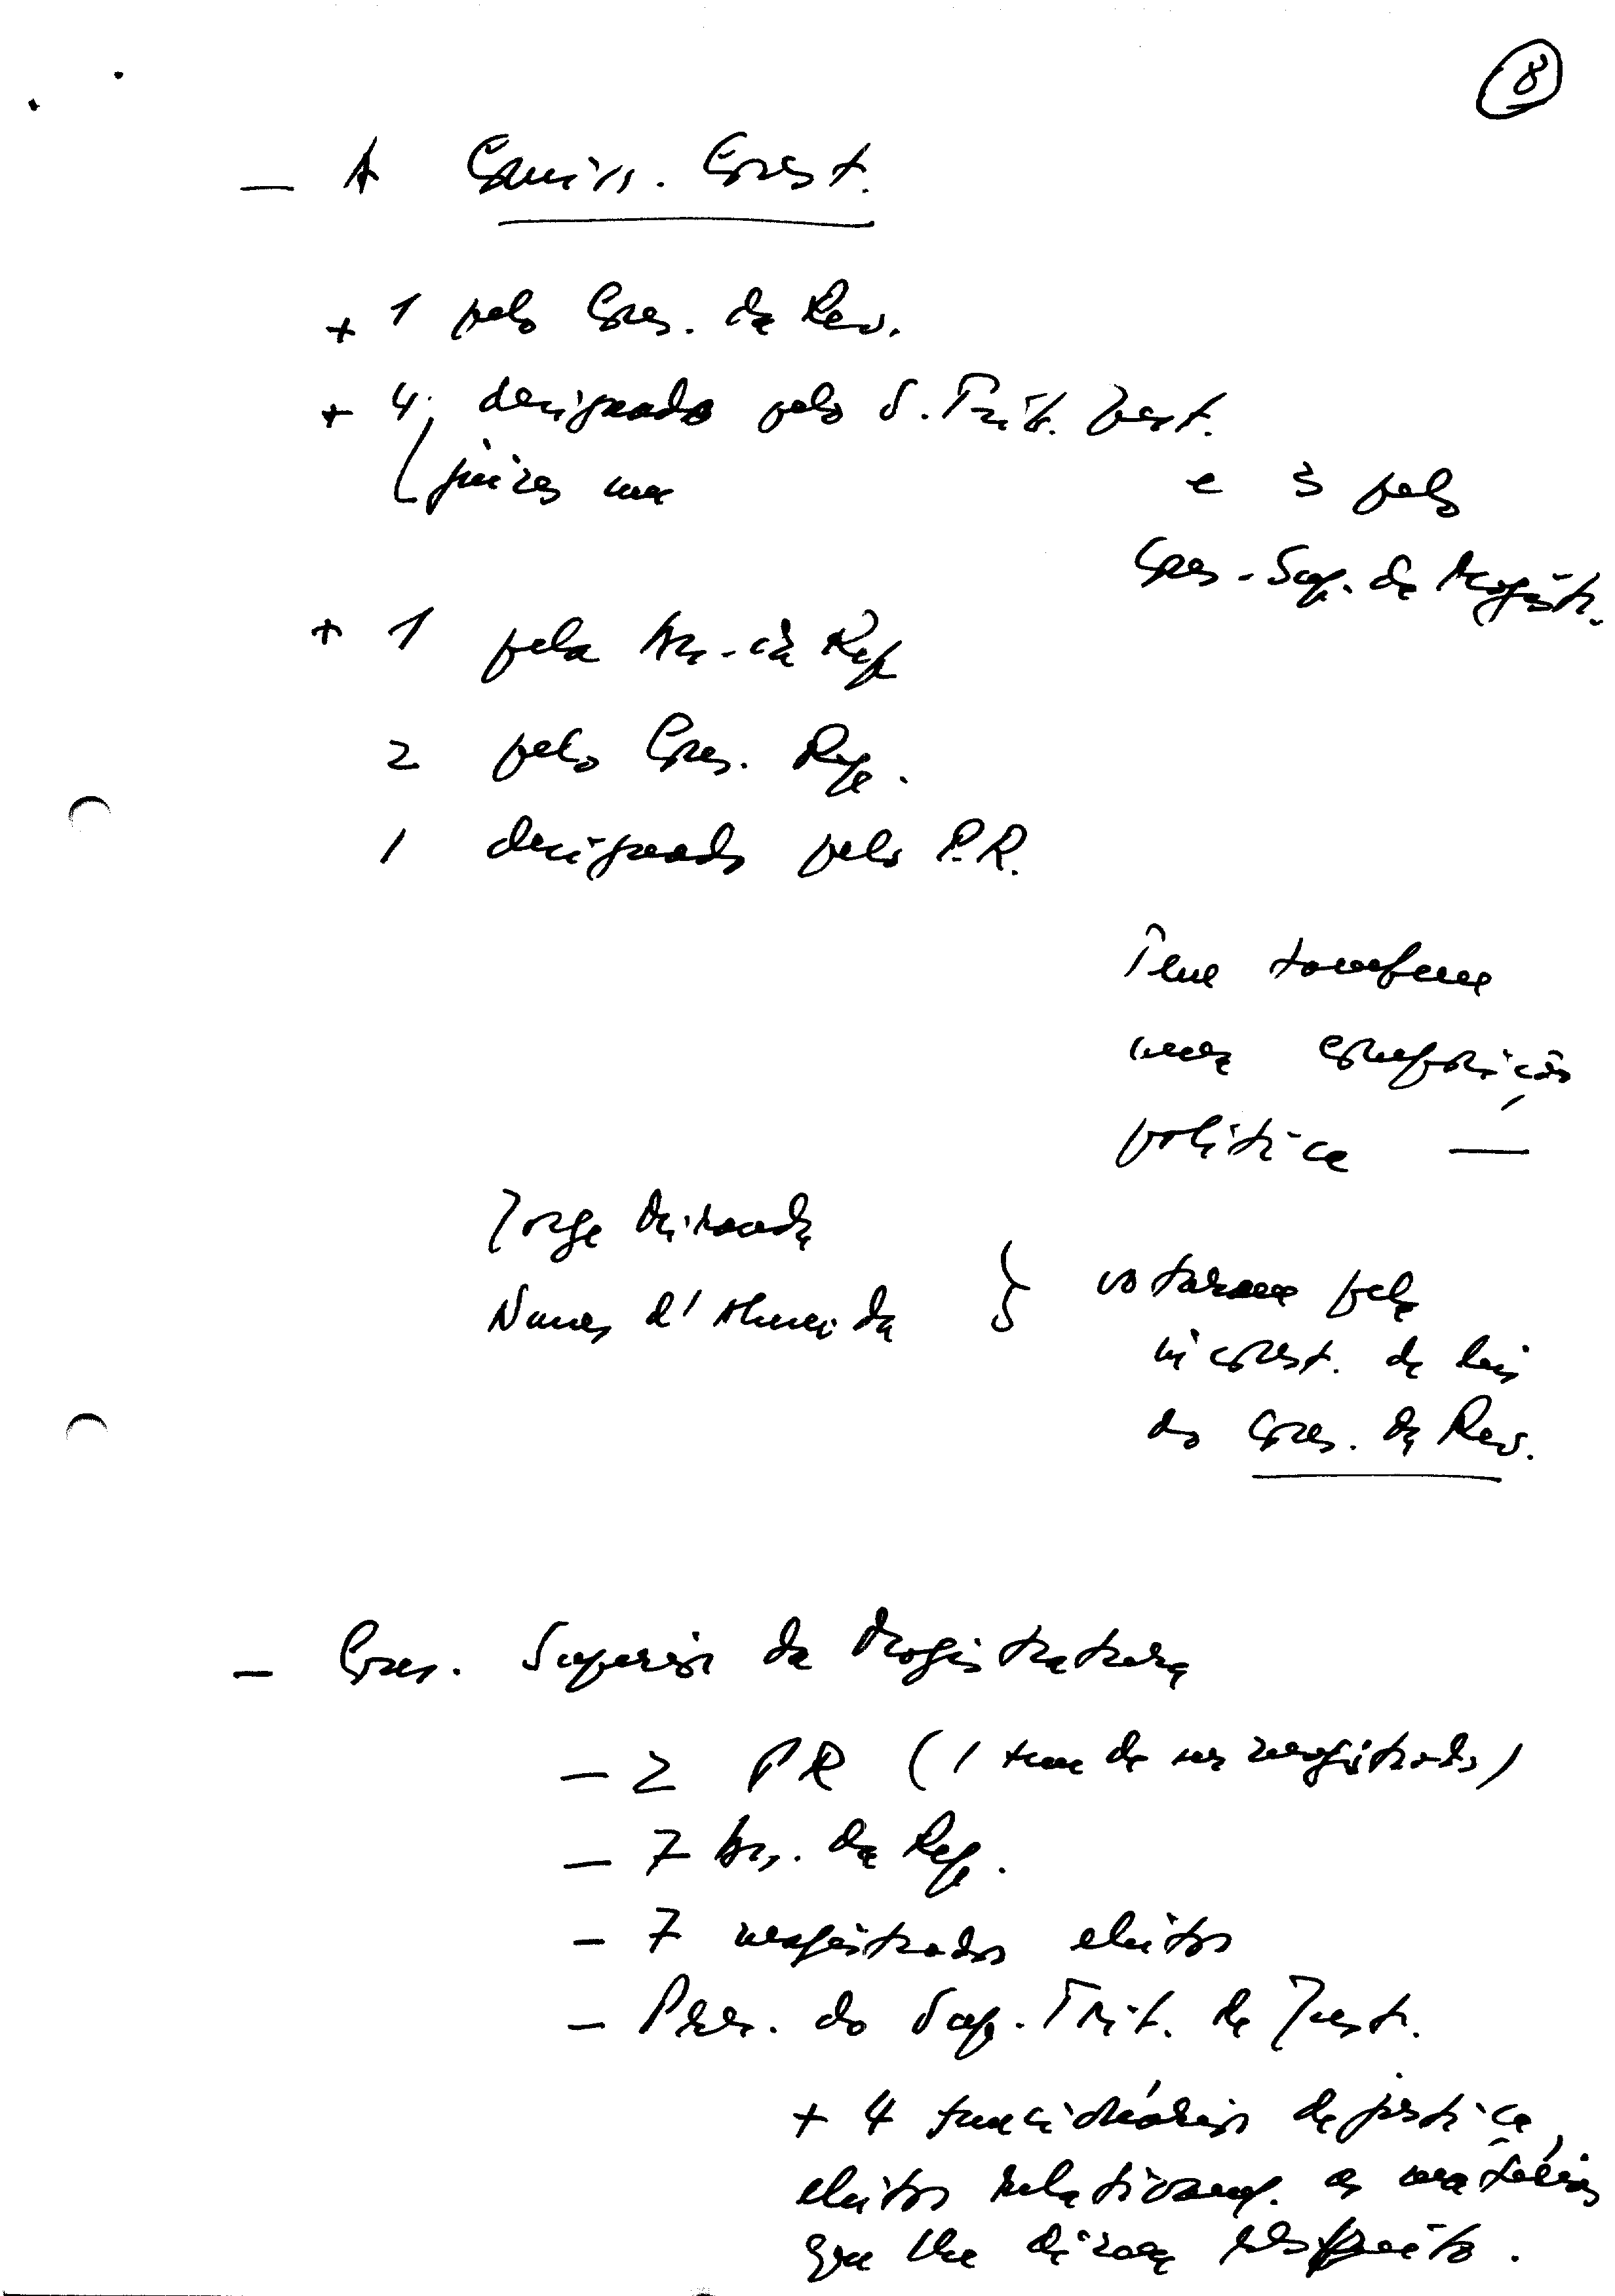 8
— A Comiss. Const.
+ 1 pelo Cons. da Rev.
+ 4 designado pelo S. Trib. Just.
juizes
e 3 pelo
Cons. Sup. da Magist.
+ 1 pela Ass. da Rep
2 pelo Cons. Rev.
1 designado pelo P.R.
Tem tambem
uma composição
politica —
Jorge Miranda
Nunes d'Almeida } votaram pela
inconst. da lei
do Cons. da Rev.
— Cons. Superior da Magistratura
— 2 PR (1 tem de ser magistrado)
— 7 Ass. da Rep.
— 7 magistrados eleitos
— Pres. do Sup. Trib. de Just.
+ 4 funcionários de justiça,
eleitos relativam. as matérias
que lhe digam respeito.